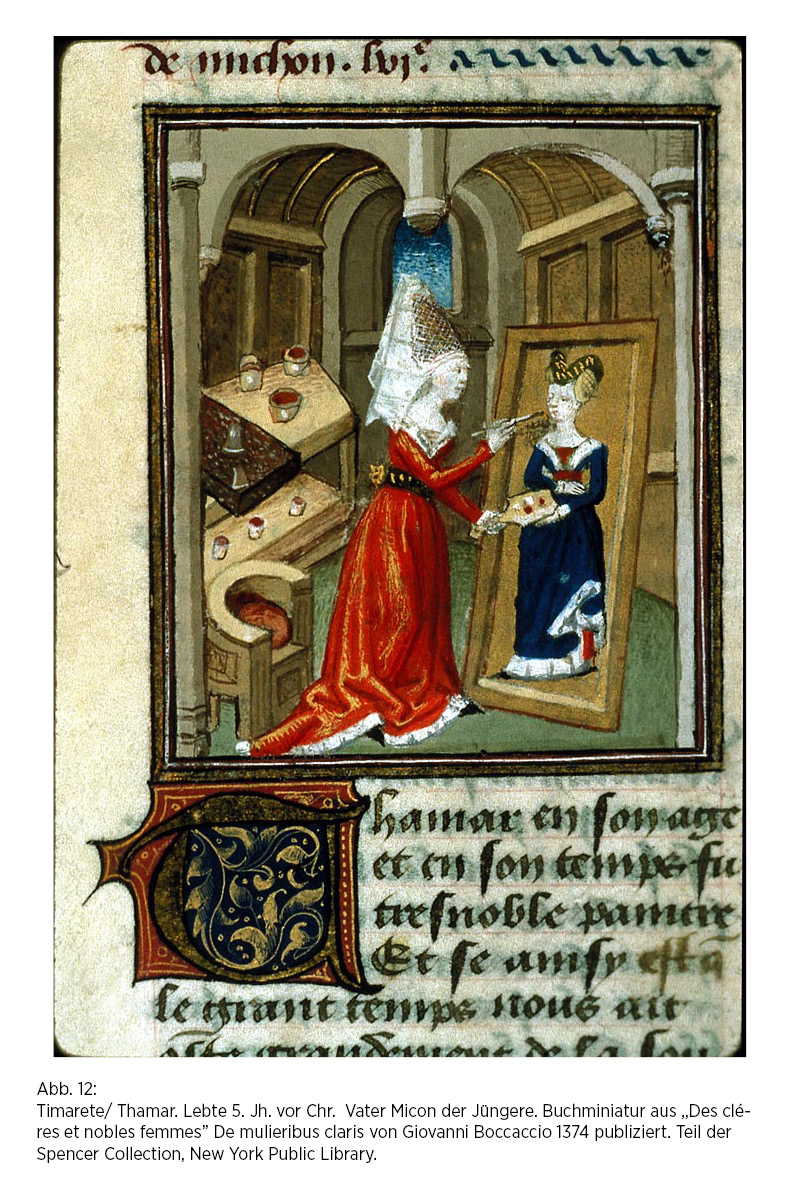 de michon. lvjͤ.
Thamar en son age
et en son temps fu
tresnoble paintre
Et se ainsy est
le grant temps nous ait
grandement de la
Abb. 12:
Timarete/ Thamar. Lebte 5. Jh. vor Chr.  Vater Micon der Jüngere. Buchminiatur aus „Des clé-
res et nobles femmes” De mulieribus claris von Giovanni Boccaccio 1374 publiziert. Teil der
Spencer Collection, New York Public Library.